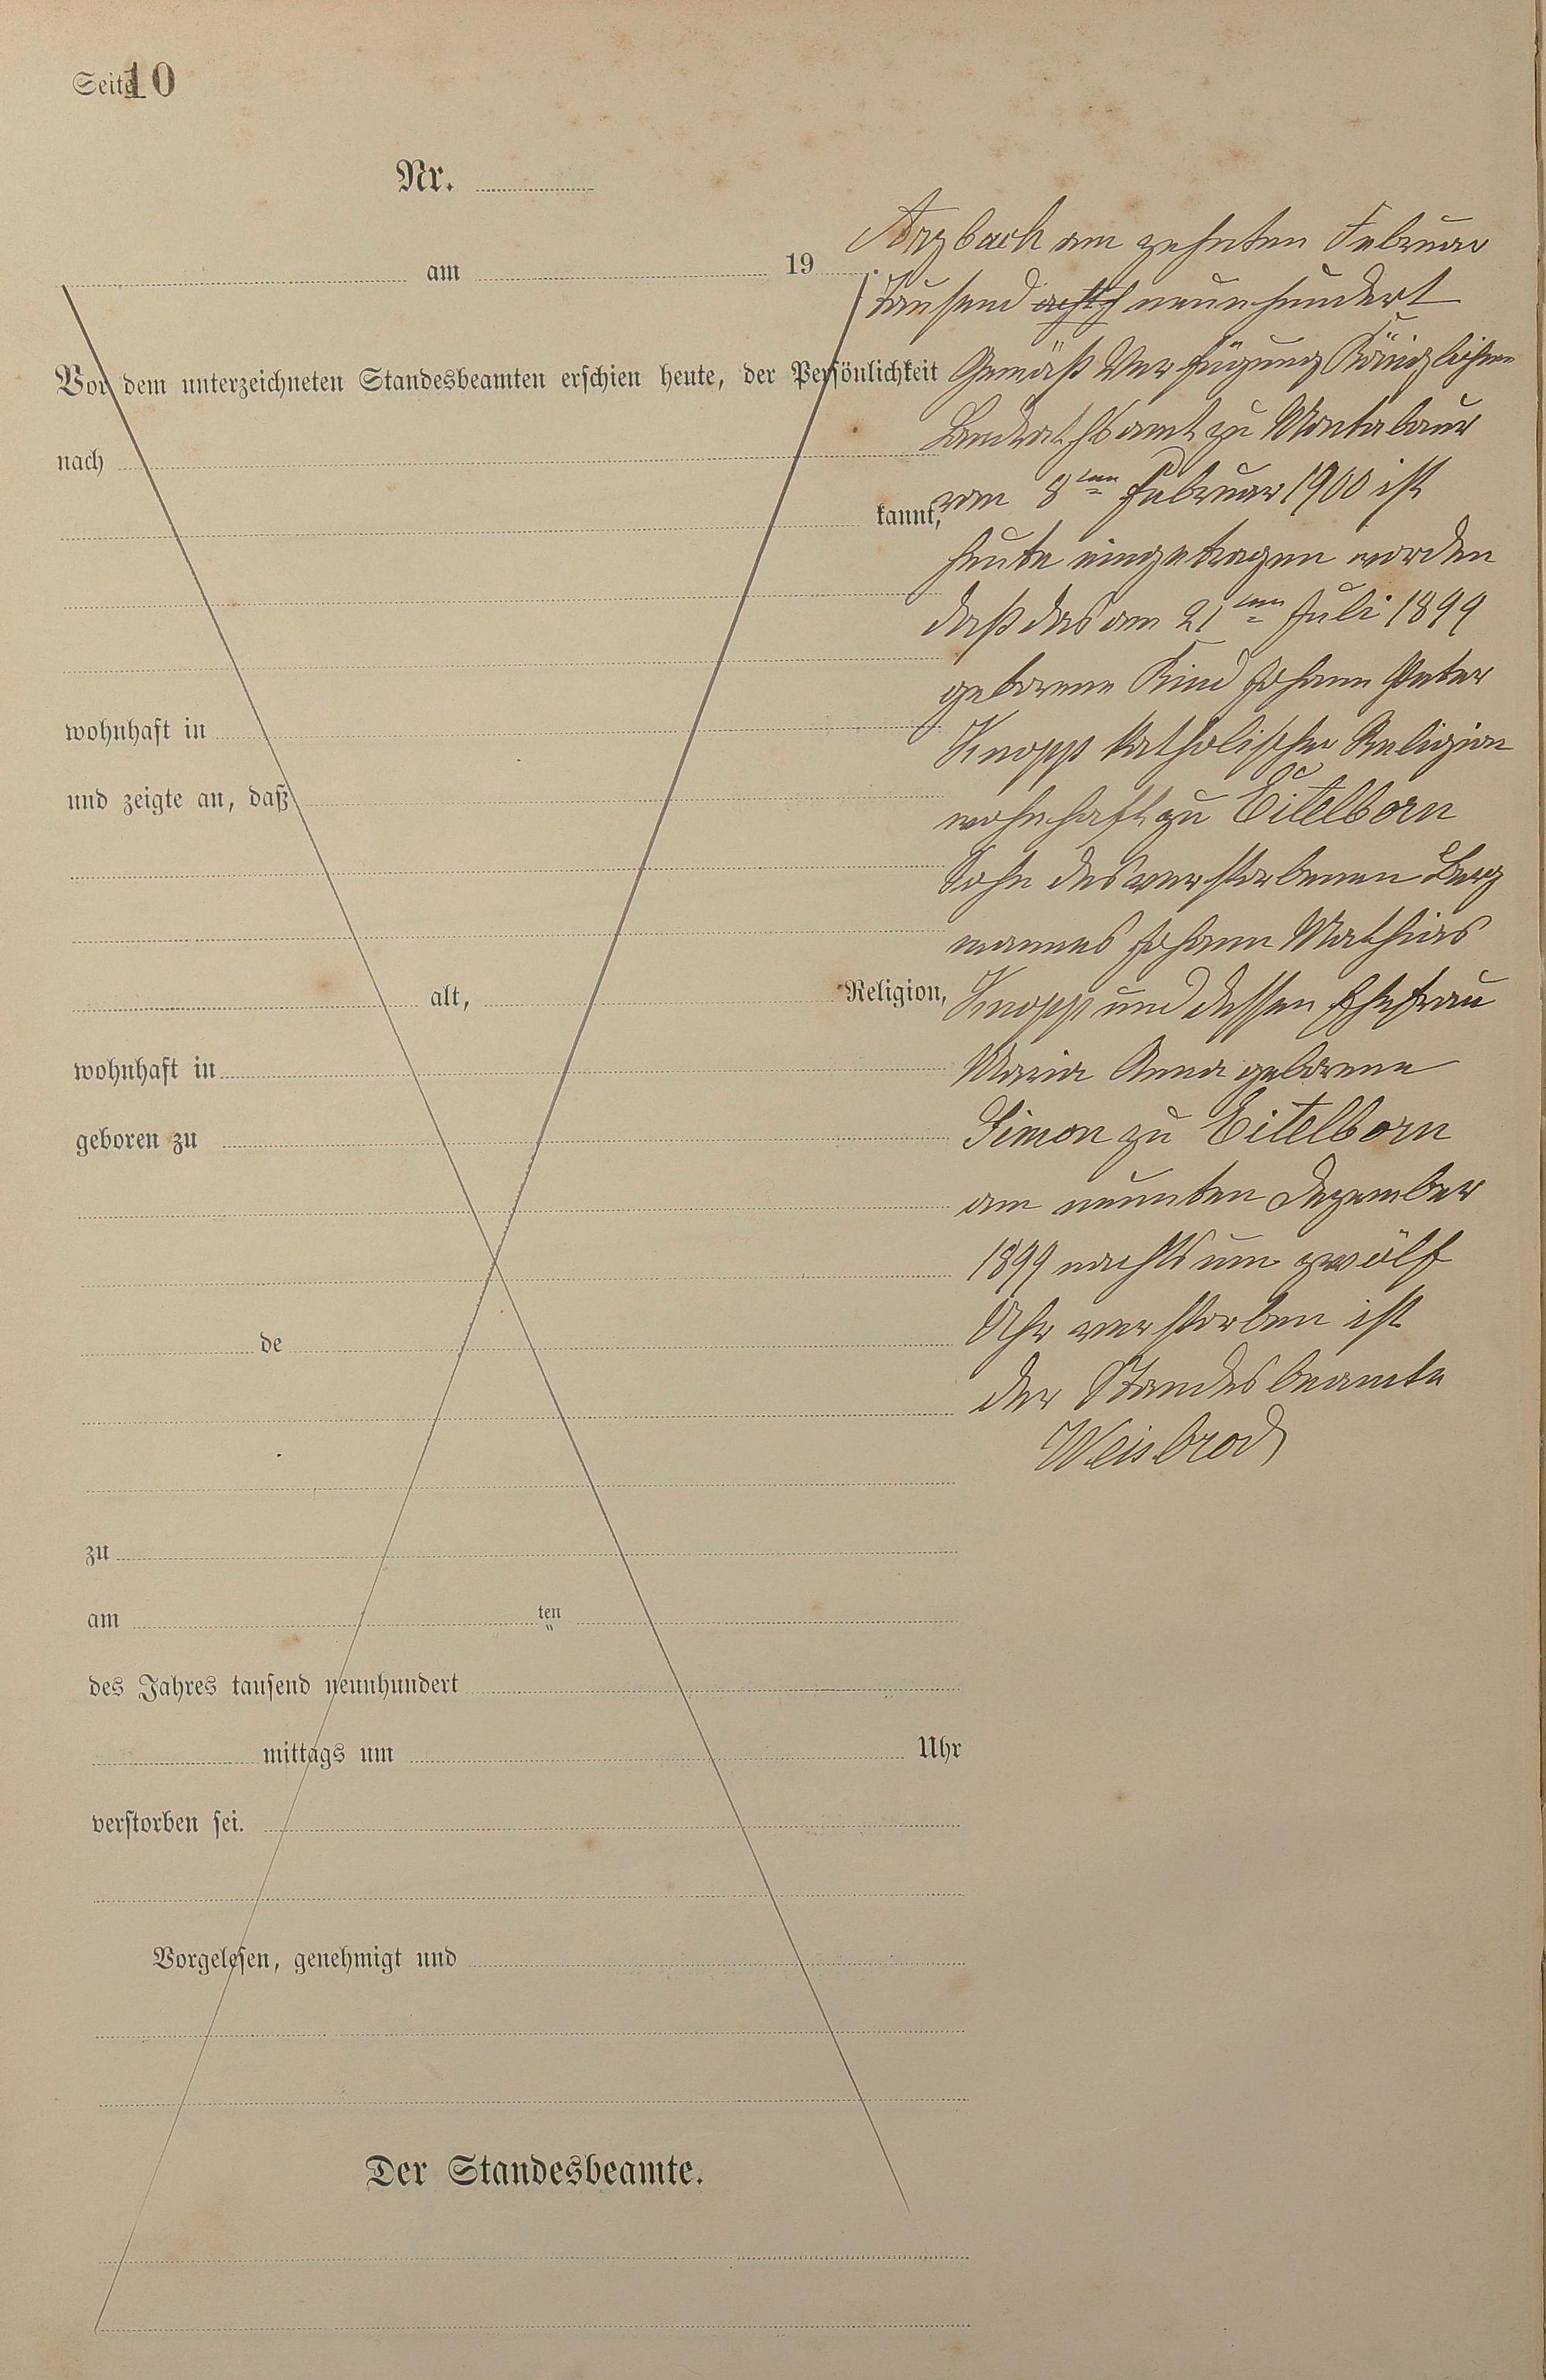 Seite 10
Nr.
am 19 .
Vor dem unterzeichneten Standesbeamten erschien heute, der Persönlichkeit
nach
kannt,
wohnhaft in
und zeigte an, daß
alt, Religion,
wohnhaft in
geboren zu
de
zu
am ten
des Jahres tausend neunhundert
mittags um Uhr
verstorben sei.
Vorgelesen, genehmigt und
Der Standesbeamte.
Arzbach am zehnten Februar
tausend achth neunhundert
Gemäß Verfügung Königlichen
Landrathsamt zu Montabaur
vom 8ten Februar 1900 ist
heute eingetragen worden
daß das am 21ten Juli 1899
geborene Kind Johann Peter
Knopp katholischer Religion
wohnhaft zu Eitelborn
Sohn des verstorbenen Berg
mannes Johann Mathias
Knopp und dessen Ehefrau
Maria Anna geborene
Simon zu Eitelborn
am neunten Dezember
1899 nachts um zwölf
Uhr verstorben ist
der Standesbeamte
Weisbrod